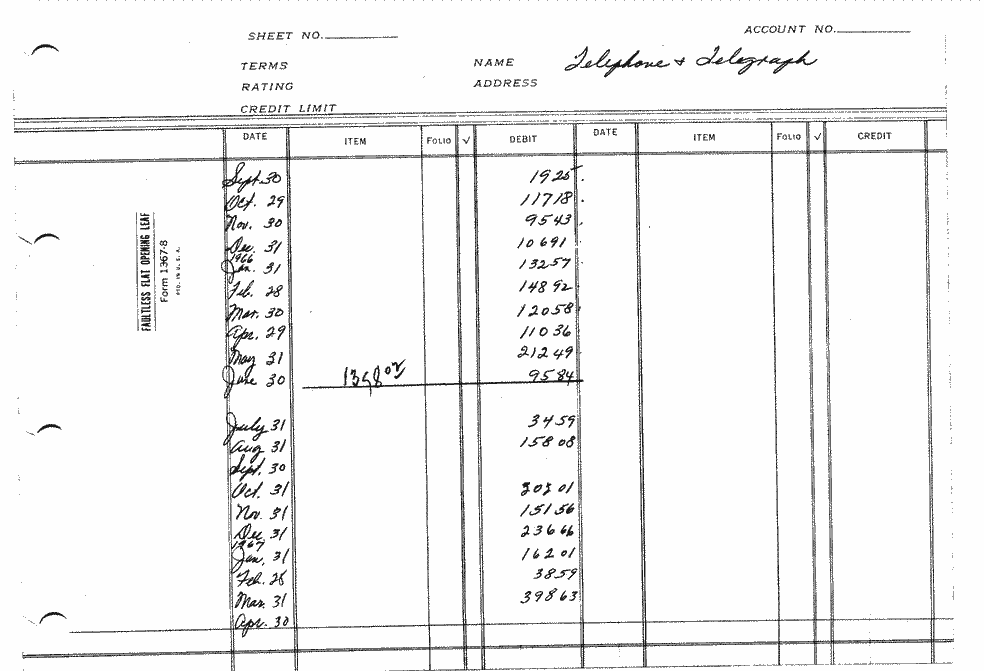 SHEET NO.
ACCOUNT NO.
TERMS
NAME Telephone + Telegraph
RATING
ADDRESS
CREDIT LIMIT
DATE ITEM FOLIO √ DEBIT DATE ITEM FOLIO √ CREDIT
Sept. 30 19 25
Oct. 29 117 18
Nov. 30 95 43
Dec. 31 106 91
1966
Jan. 31 132 57
Feb. 28 148 92
Mar. 30 120 58
Apr. 29 110 36
May 31 212 49
June 30 95 84
July 31 34 59
Aug 31 158 08
Sept. 30
Oct. 31 01
Nov. 31 151 56
Dec. 31 236 66
1967
Jan. 31 162 01
Feb. 28 38 59
Mar. 31 398 63
Apr. 30
FAULTLESS FLAT OPENING LEAF
Form 1367-8
MFD. IN U. S. A.